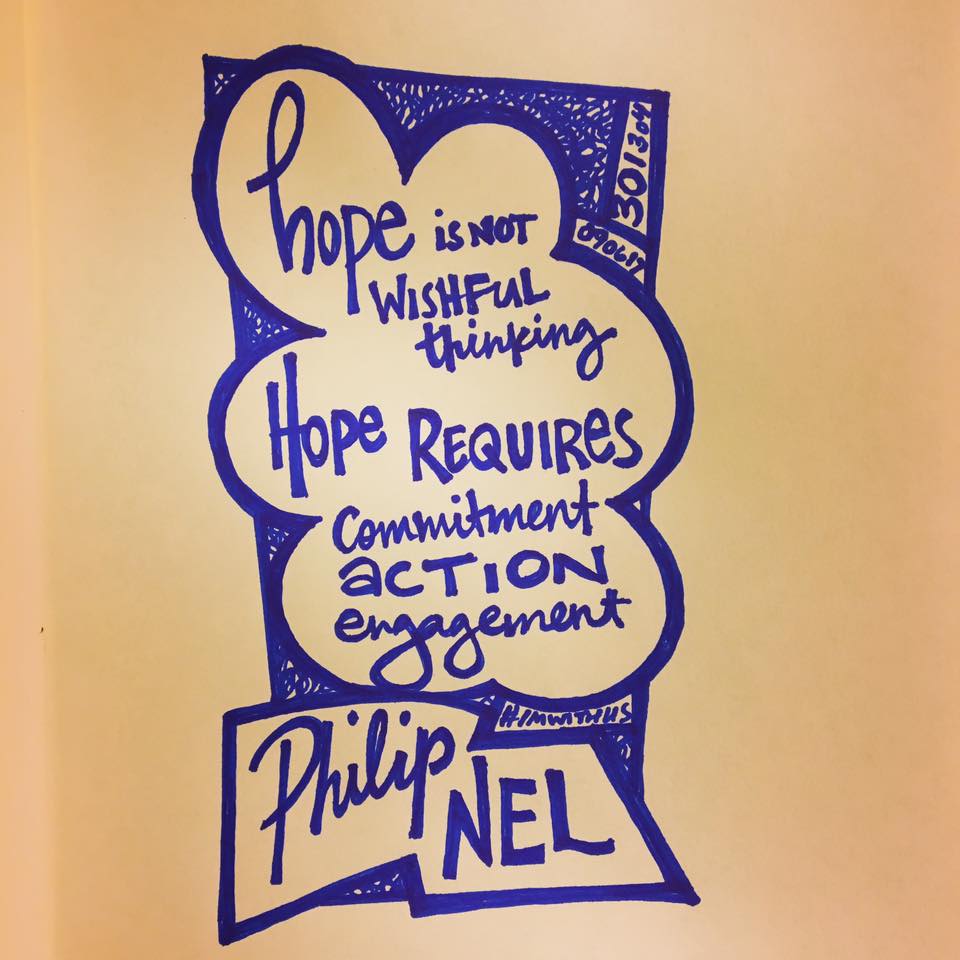 hope is NOT
WISHFUL
thinking
Hope REQUIRes
Commitment
aCTION
engagement
301304
090617
#IMWITHUS
Philip
NEL